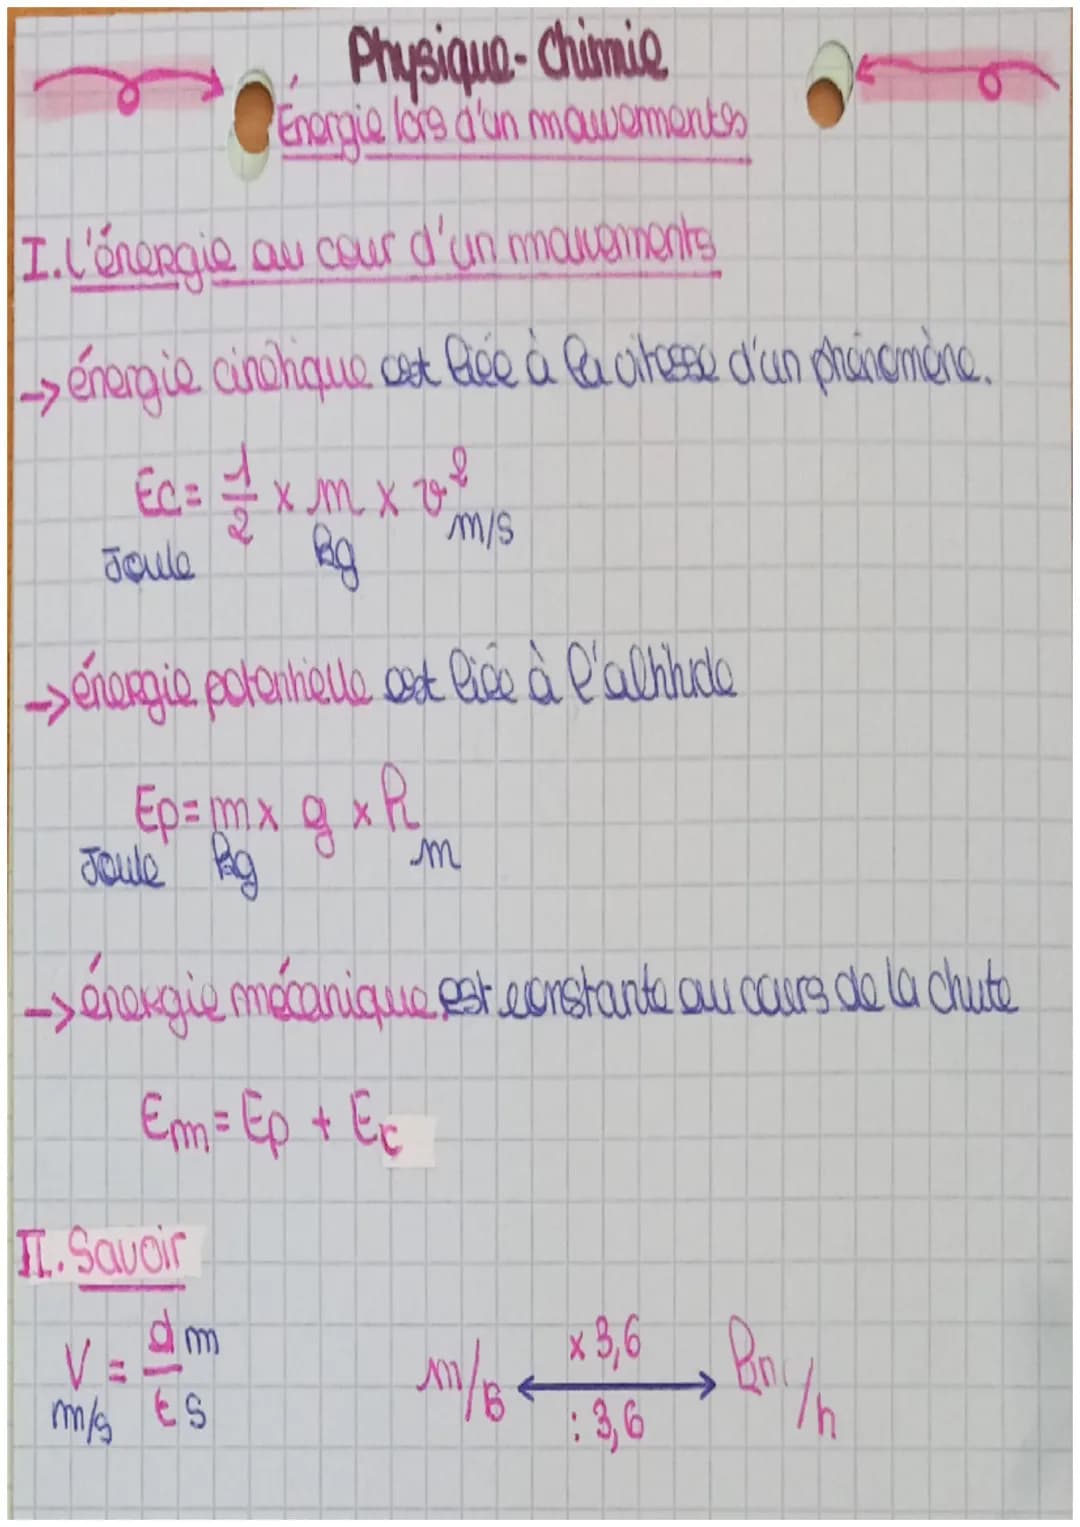 Physique-Chimie
Énergie lors d'un mouvements
I. L'énergie au cour d'un mouvements
→ énergie cinétique est liée à la vitesse d'un phénomène.
Ec = 1/2 x m x v²
Joule kg m/s
→ énergie potentielle est liée à l'altitude
Ep = m x g x h
Joule kg m
→ énergie mécanique est constante au cours de la chute
Em = Ep + Ec
II. Savoir
V = d/t
m/s m s
m/s ←→ km/h
x 3,6
: 3,6